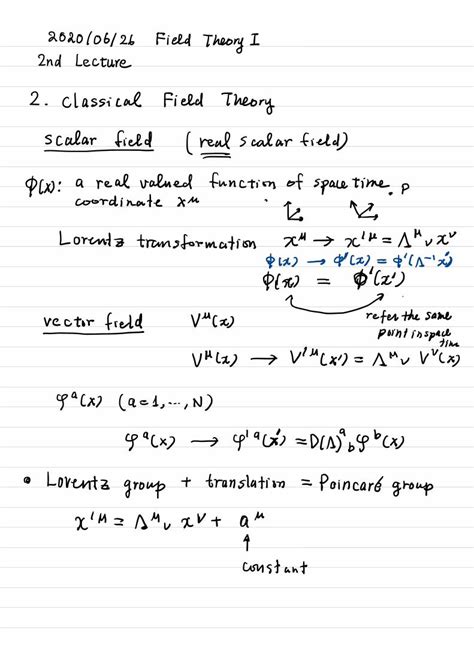 2020/06/26 Field Theory I
2nd Lecture
2. Classical Field Theory
scalar field (real scalar field)
φ(x): a real valued function of space time. P
coordinate x^μ
Lorentz transformation x^μ → x'^μ = Λ^μ_ν x^ν
φ(x) → φ'(x) = φ'(Λ⁻¹x')
φ(x) = φ'(x')
refer the same
point in space
time
vector field V^μ(x)
V^μ(x) → V'^μ(x') = Λ^μ_ν V^ν(x)
φ^a(x) (a=1,...,N)
φ^a(x) → φ'^a(x') = D(Λ)^a_b φ^b(x)
• Lorentz group + translation = Poincaré group
x'^μ = Λ^μ_ν x^ν + a^μ
↑
constant